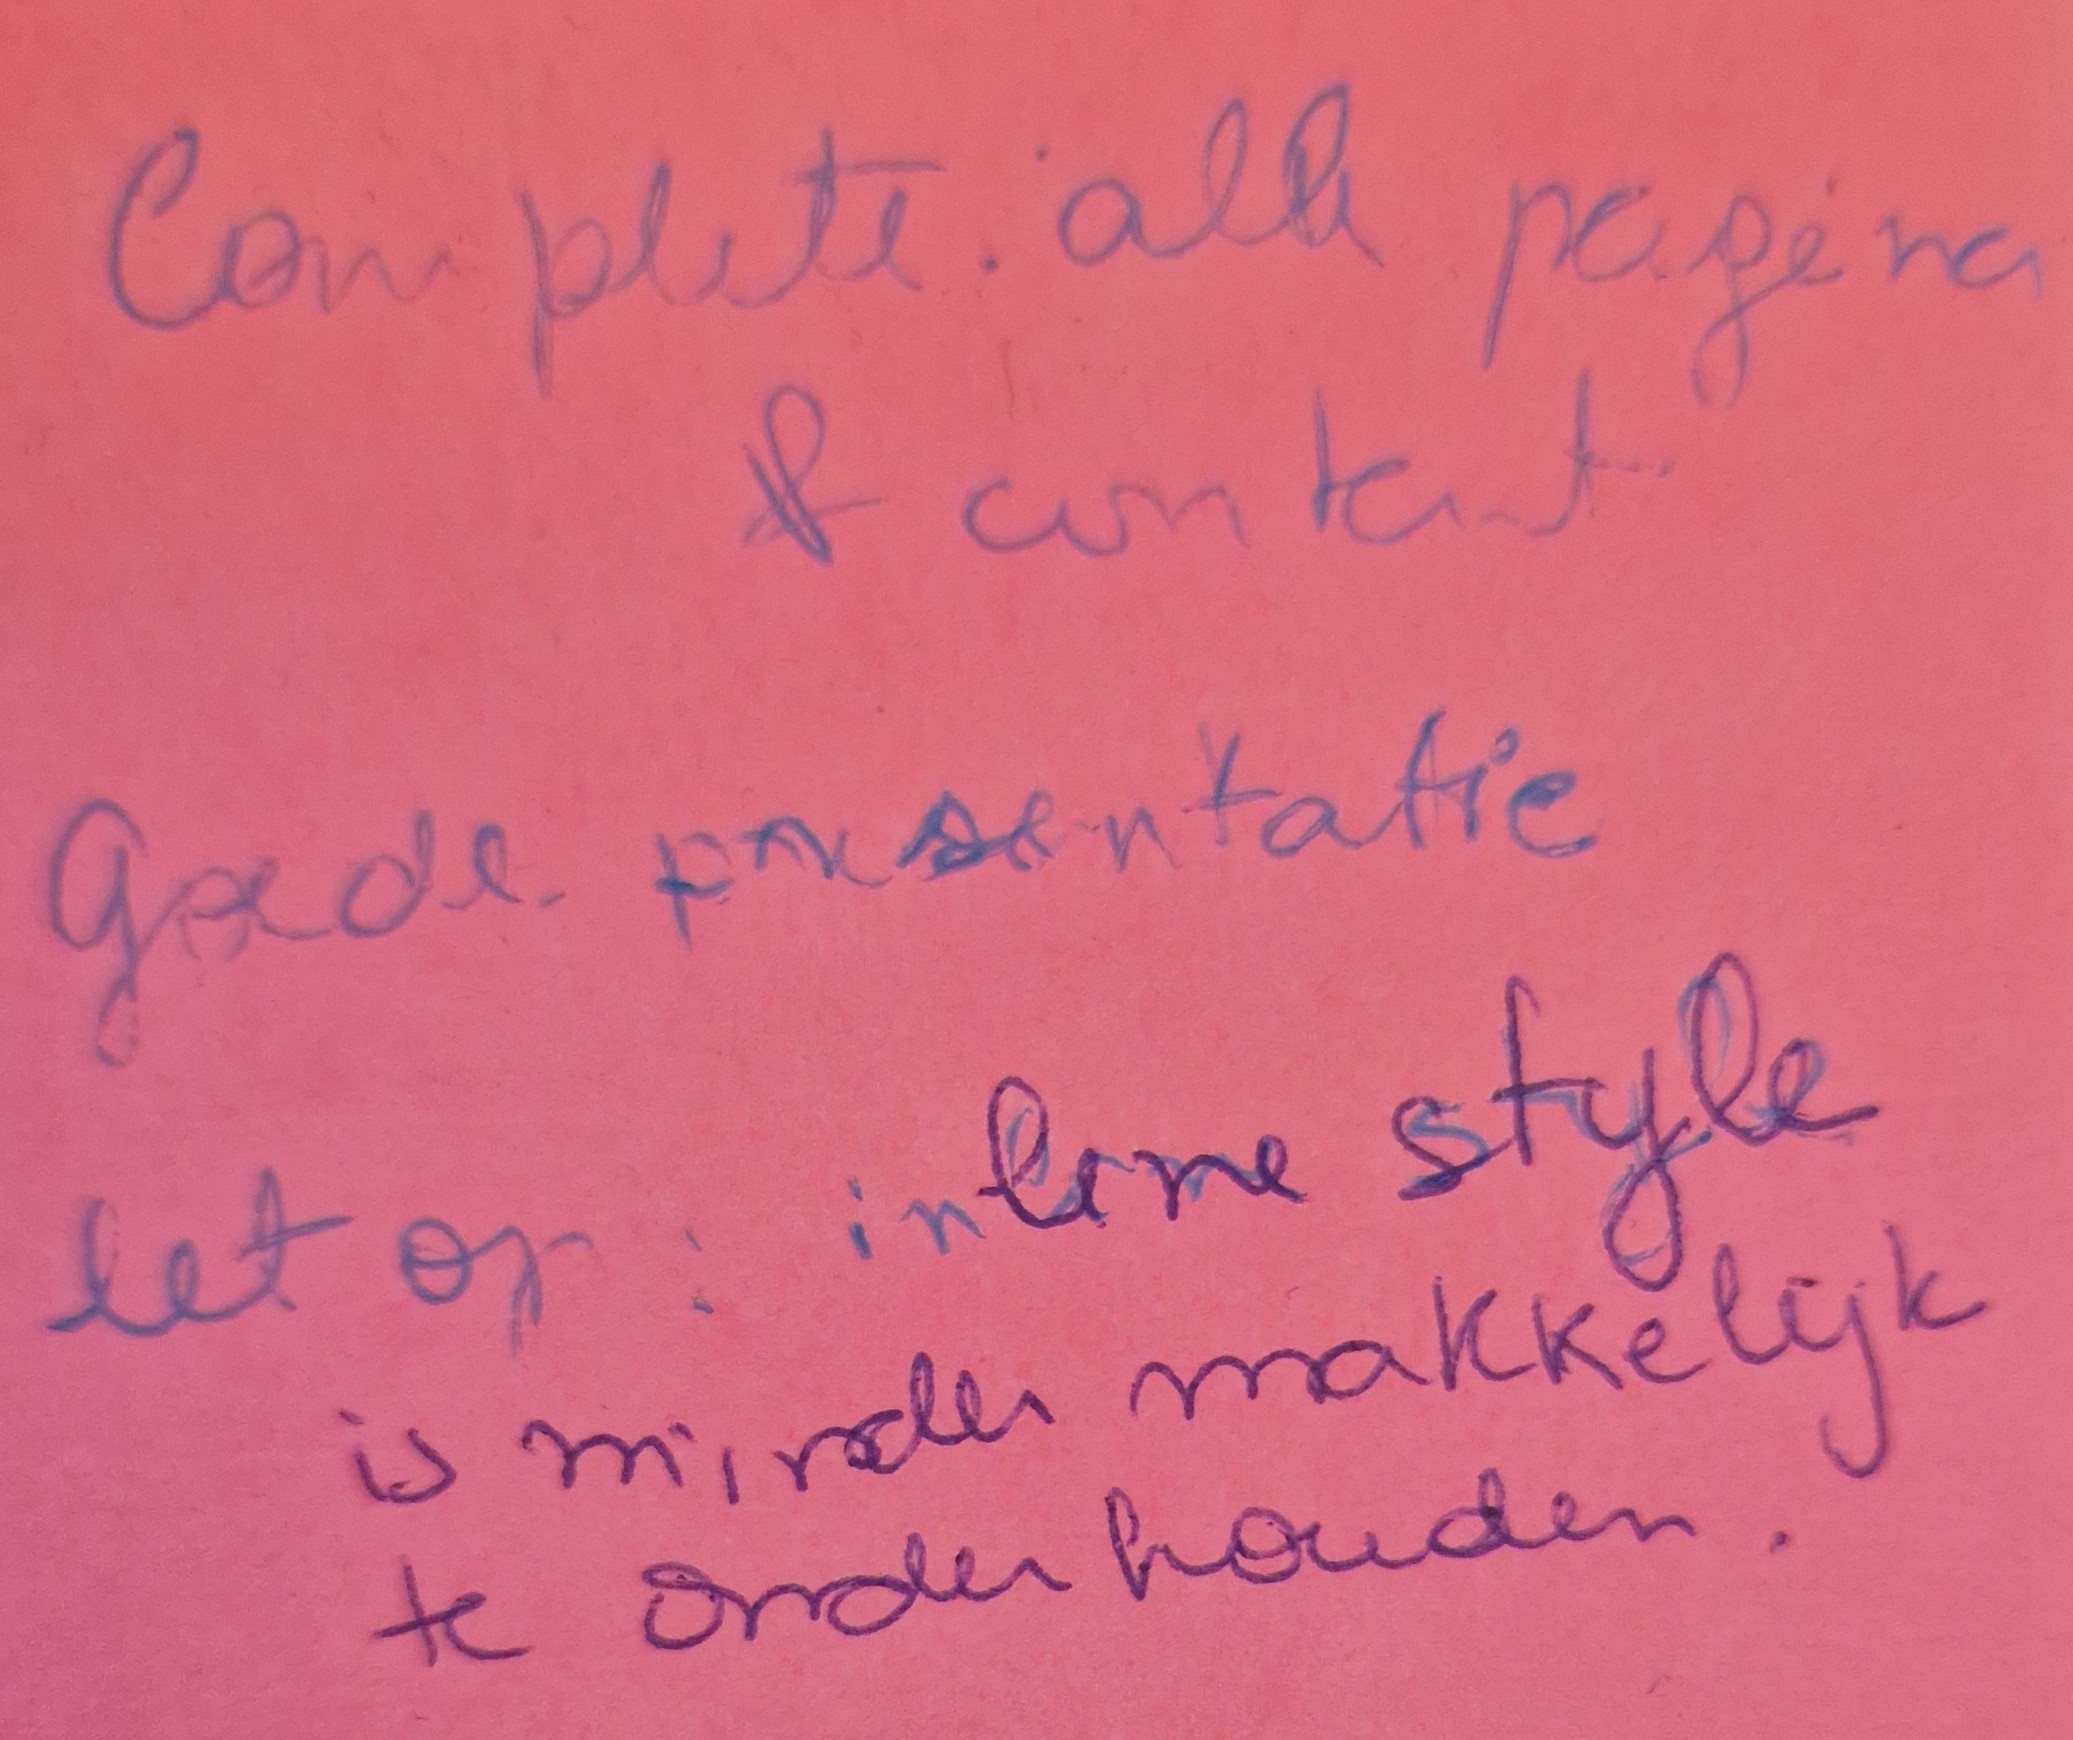 Complete. alle pagina
& content
Goede presentatie
let op: inline style
is minder makkelijk
te onderhouden.